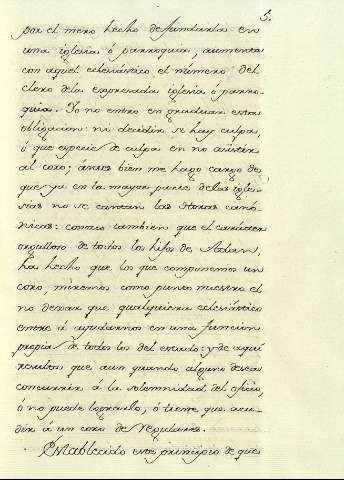 5.
por el mero hecho de fundarla en
una iglesia ó parroquia, aumenta
con aquel eclesiástico el número del
clero dela expresada iglesia ó parro-
quia. Yo no entro en graduar estas
obligacion: ni decidir se hay culpa,
ó que especie de culpa en no asistir
al coro; ántes bien me hago cargo de
que ya en la mayor parte delas igle-
sias no se cantan las Horas canó-
nicas: conozco tambien que el carácter
orgulloso de todos los hijos de Adan,
ha hecho que los que componemos un
coro miremos como punto nuestro el
no dexar que qualquiera eclesiástico
entre á ayudarnos en una funcion
propia de todos los del estado: y de aqui
resulta que aun quando alguno desea
concurrir á la solemnidad del oficio,
ó no puede lograrlo, ó tiene que acu-
dir á un coro de Regulares.
Establecido este principio de que